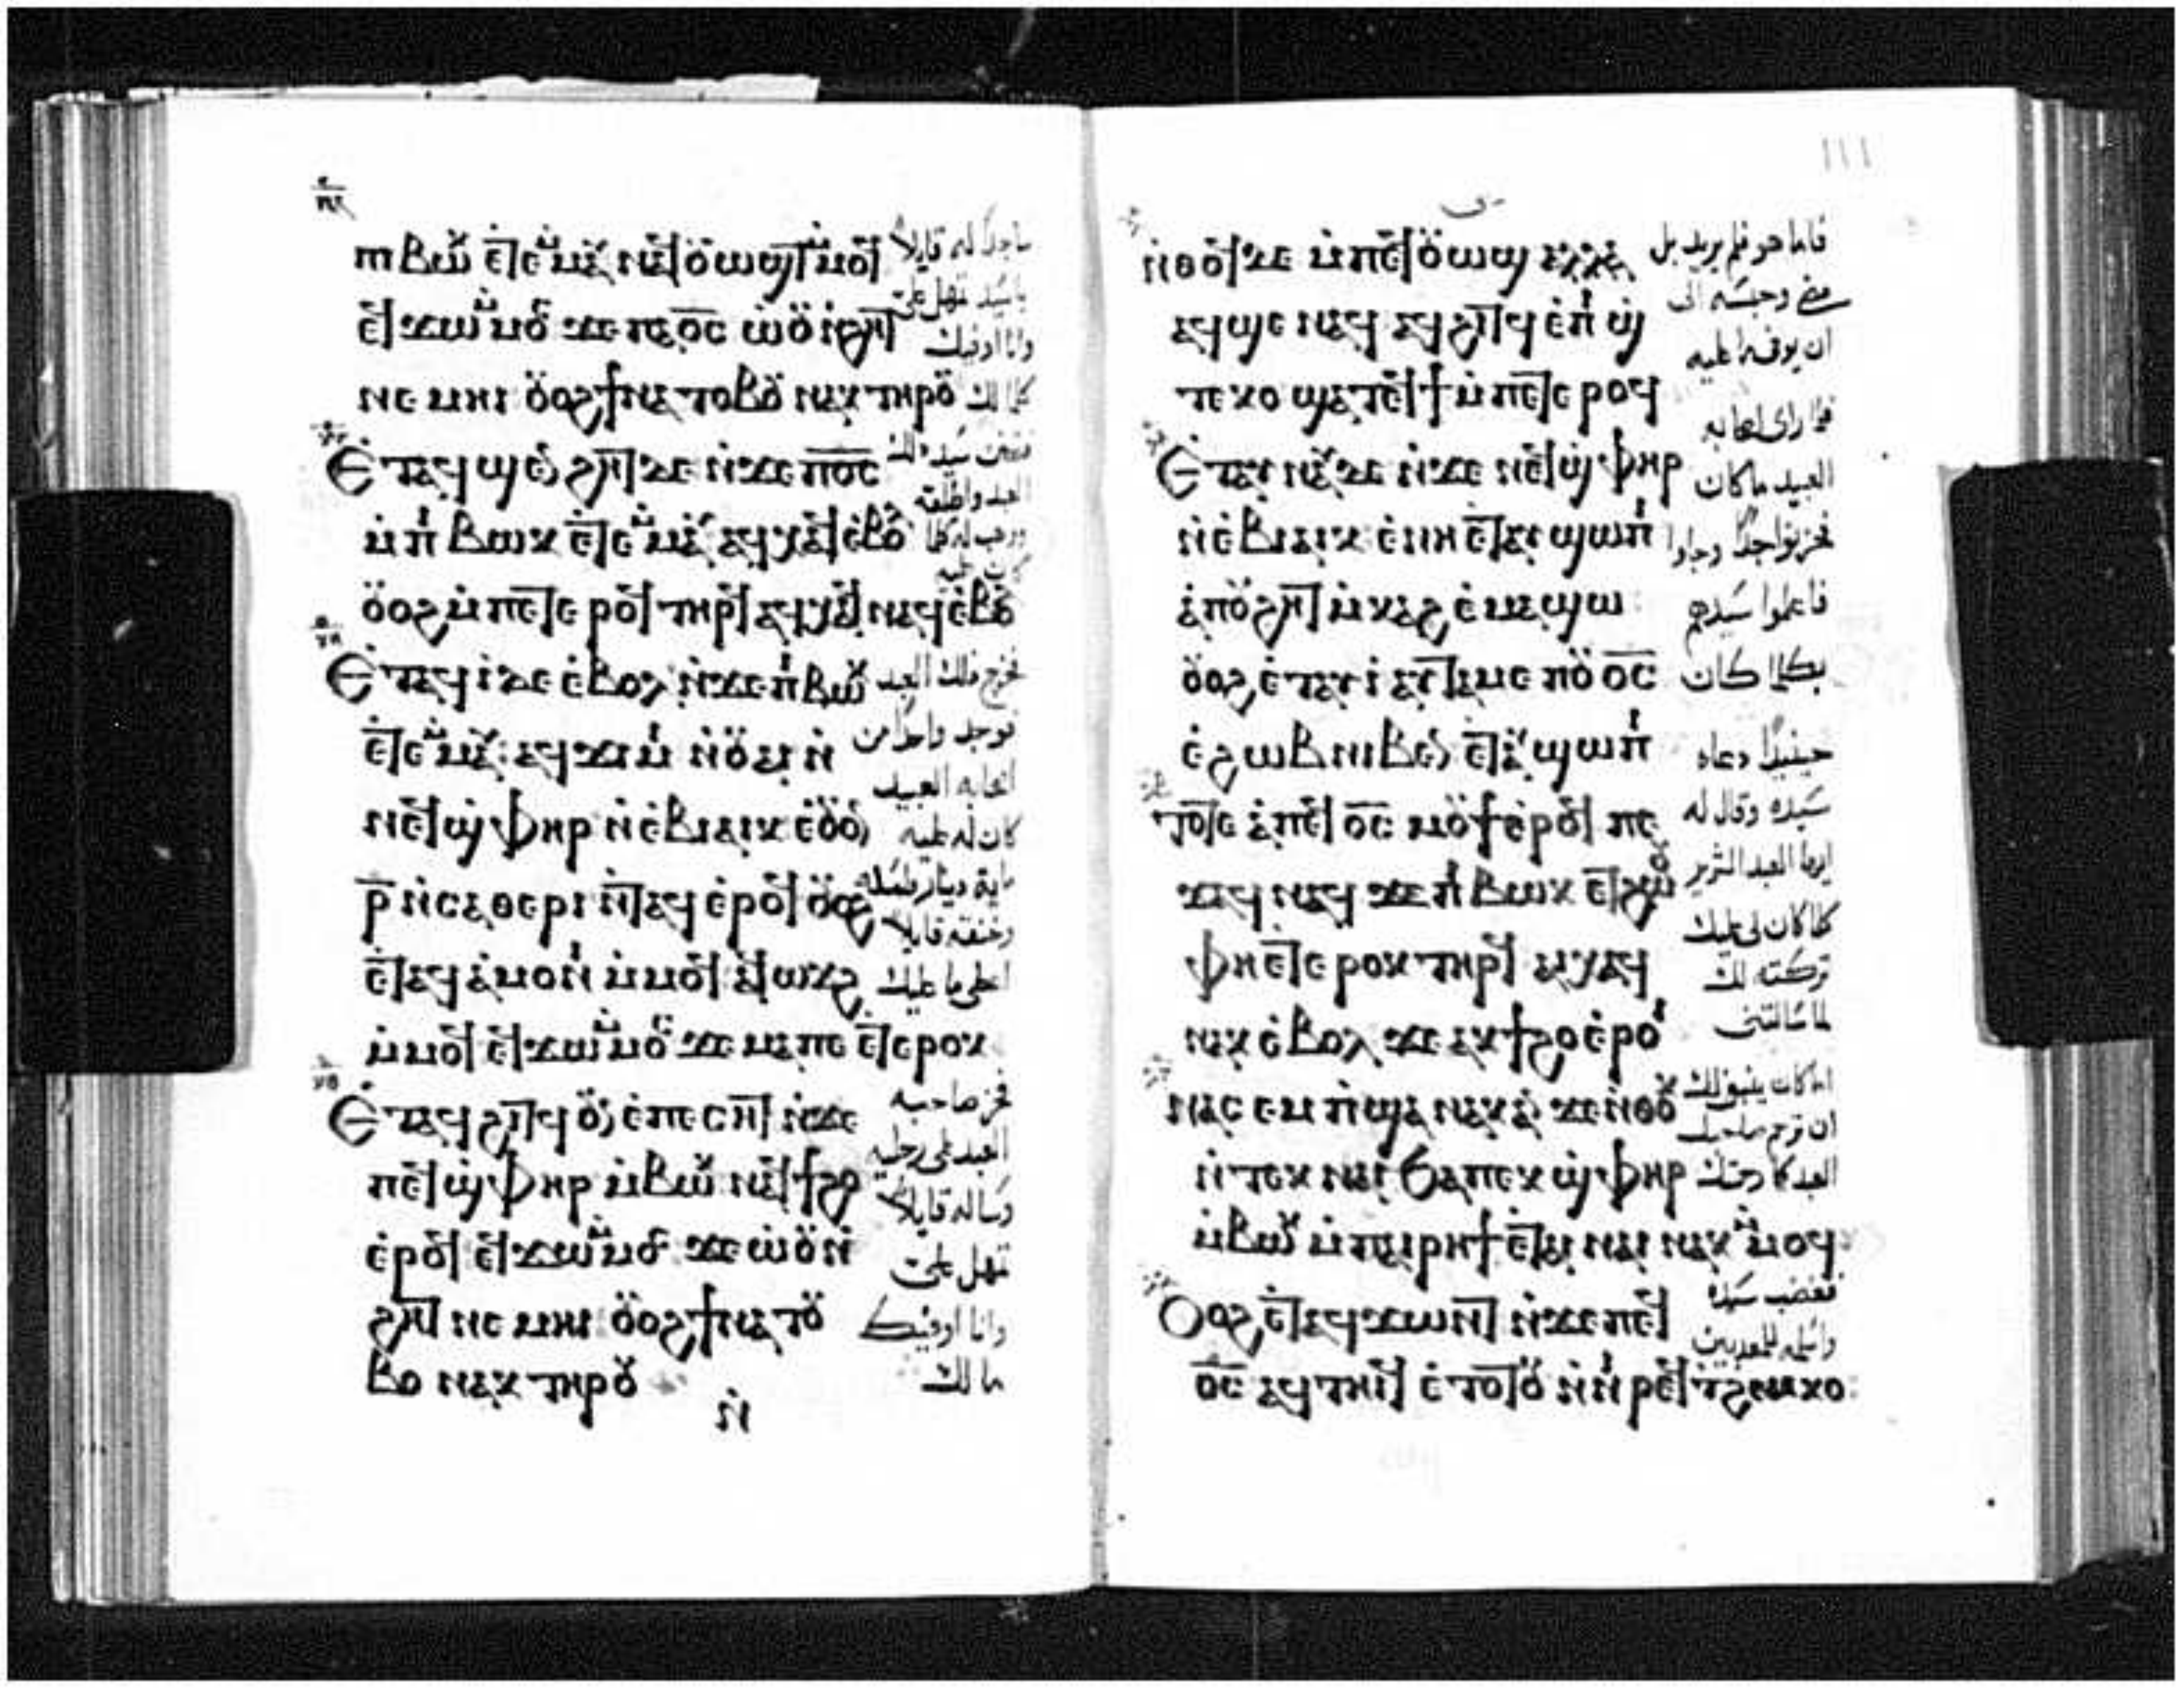 ⲡⲓⲃⲱⲕ ⲉⲧⲉⲙⲙⲁⲩ ⲛⲁϥⲟⲩⲱϣⲧ ⲙⲙⲟϥ
ⲉϥϫⲱ ⲙⲙⲟⲥ ϫⲉ ⲡⲁⲟ̅ⲥ̅ ⲱⲟⲩ ⲛϩⲏⲧ
ⲛⲉⲙⲏⲓ ⲟⲩⲟϩ ϯⲛⲁⲧⲟⲃⲟⲩ ⲛⲁⲕ ⲧⲏⲣⲟⲩ
Ⲉⲧⲁϥϣⲉⲛϩⲏⲧ ⲇⲉ ⲛϫⲉ ⲡⲟ̅ⲥ̅
ⲙⲡⲓⲃⲱⲕ ⲉⲧⲉⲙⲙⲁⲩ ⲁϥⲭⲁϥ ⲉⲃⲟⲗ
ⲟⲩⲟϩ ⲙⲡⲉⲧⲉⲣⲟϥ ⲧⲏⲣϥ ⲁϥⲭⲁϥ ⲛⲁϥ ⲉⲃⲟⲗ
Ⲉⲧⲁϥⲓ ⲇⲉ ⲉⲃⲟⲗ ⲛϫⲉ ⲡⲓⲃⲱⲕ
ⲉⲧⲉⲙⲙⲁⲩ ⲁϥϫⲓⲙⲓ ⲛⲟⲩⲁⲓ ⲛ
ⲛⲉϥϣⲫⲏⲣ ⲛⲉⲃⲓⲁⲓⲕ ⲉⲟⲩⲟⲛ
ⲣ̅ ⲛⲥⲁⲑⲉⲣⲓ ⲛⲧⲁϥ ⲉⲣⲟϥ ⲟⲩⲟϩ
ⲉⲧⲁϥⲁⲙⲟⲛⲓ ⲙⲙⲟϥ ⲁϥⲱϫϩ
ⲙⲙⲟϥ ⲉϥϫⲱ ⲙⲙⲟⲥ ϫⲉ ⲙⲁ ⲡⲉⲧⲉⲣⲟⲕ
Ⲉⲧⲁϥϩⲓⲧϥ ⲟⲩⲛ ⲉⲡⲉⲥⲏⲧ ⲛϫⲉ
ⲡⲉϥϣⲫⲏⲣ ⲙⲃⲱⲕ ⲛⲁϥϯϩⲟ
ⲉⲣⲟϥ ⲉϥϫⲱ ⲙⲙⲟⲥ ϫⲉ ⲱⲟⲩ ⲛ
ϩⲏⲧ ⲛⲉⲙⲏⲓ ⲟⲩⲟϩ ϯⲛⲁⲧⲟⲩ
ⲃⲟ ⲛⲁⲕ ⲧⲏⲣⲟⲩ
ⲛ̇
ساجدا له قايلا
يا سيد تمهل علي
وانا اوفيك
كلما لك
فتحنن سيد ذلك
العبد واطلقه
ووهب له كلما
كان عليه
خرج ذلك العبد
فوجد واحدا من
اصحابه العبيد
كان له عليه
ماية دينار فمسكه
وخنقه قايلا
اعطي ما عليك
فخر صاحبه
العبد على رجليه
وساله قايلا
تمهل علي
وانا اوفيك
ما لك
١١١
ⲛⲑⲟϥ ⲇⲉ ⲙⲡⲉϥⲟⲩⲱϣ ⲁⲗⲗⲁ
ⲁϥϣⲉ ⲛⲁϥ ⲁϥϩⲓⲧϥ ⲉⲡⲓϣ
ⲧⲉⲕⲟ ϣⲁⲧⲉϥϯ ⲙⲡⲉⲧⲉⲣⲟϥ
Ⲉⲧⲁⲩⲛⲁⲩ ⲇⲉ ⲛϫⲉ ⲛⲉϥϣⲫⲏⲣ
ⲛⲉⲃⲓⲁⲓⲕ ⲉⲛⲏ ⲉⲧⲁⲩϣⲱⲡⲓ
ⲁⲡⲟⲩϩⲏⲧ ⲙⲕⲁϩ ⲉⲙⲁϣⲱ
ⲟⲩⲟϩ ⲉⲧⲁⲩⲓ ⲁⲩⲧⲁⲙⲉ ⲡⲟⲩⲟ̅ⲥ̅
ⲉϩⲱⲃ ⲛⲓⲃⲉⲛ ⲉⲧⲁⲩϣⲱⲡⲓ
ⲧⲟⲧⲉ ⲁⲡⲉϥⲟ̅ⲥ̅ ⲙⲟⲩϯ ⲉⲣⲟϥ ⲡⲉ
ϫⲁϥ ⲛⲁϥ ϫⲉ ⲡⲓⲃⲱⲕ ⲉⲧϩⲱⲟⲩ
ⲫⲏ ⲉⲧⲉⲣⲟⲕ ⲧⲏⲣϥ ⲁⲓⲭⲁϥ
ⲛⲁⲕ ⲉⲃⲟⲗ ϫⲉ ⲁⲕϯϩⲟ ⲉⲣⲟⲓ
ⲛⲁⲥⲉⲙⲡϣⲁ ⲛⲁⲕ ⲁⲛ ϫⲉ ⲛⲑⲟⲕ
ⲛⲧⲉⲕⲛⲁⲓ ϧⲁ ⲡⲉⲕϣⲫⲏⲣ
ⲙⲃⲱⲕ ⲙⲡⲁⲓⲣⲏϯ ⲉⲧⲁⲓⲛⲁⲓ ⲛⲁⲕ ⲙⲙⲟϥ
Ⲟⲩⲟϩ ⲉⲧⲁϥϫⲱⲛⲧ ⲛϫⲉ ⲡⲉϥ
ⲟ̅ⲥ̅ ⲁϥⲧⲏⲓϥ ⲉⲧⲟⲧⲟⲩ ⲛⲛⲓⲣⲉϥⲧϩⲉⲙⲕⲟ
فاما هو فلم يريد بل
مضى وحبسه الى
ان يوف ما عليه
فلما راى اصحابه
العبيد ما كان
فحزنوا جدا وجاوا
فاعلموا سيدهم
بكلما كان
حينيذا دعاه
سيده وقال له
ايها العبد الشرير
كلما كان لي عليك
تركته لك
لما سالتني
اما كان ينبغي لك
ان ترحم صاحبك
العبد كما رحمتك
فغضب سيده
واسلمه للمعذبين